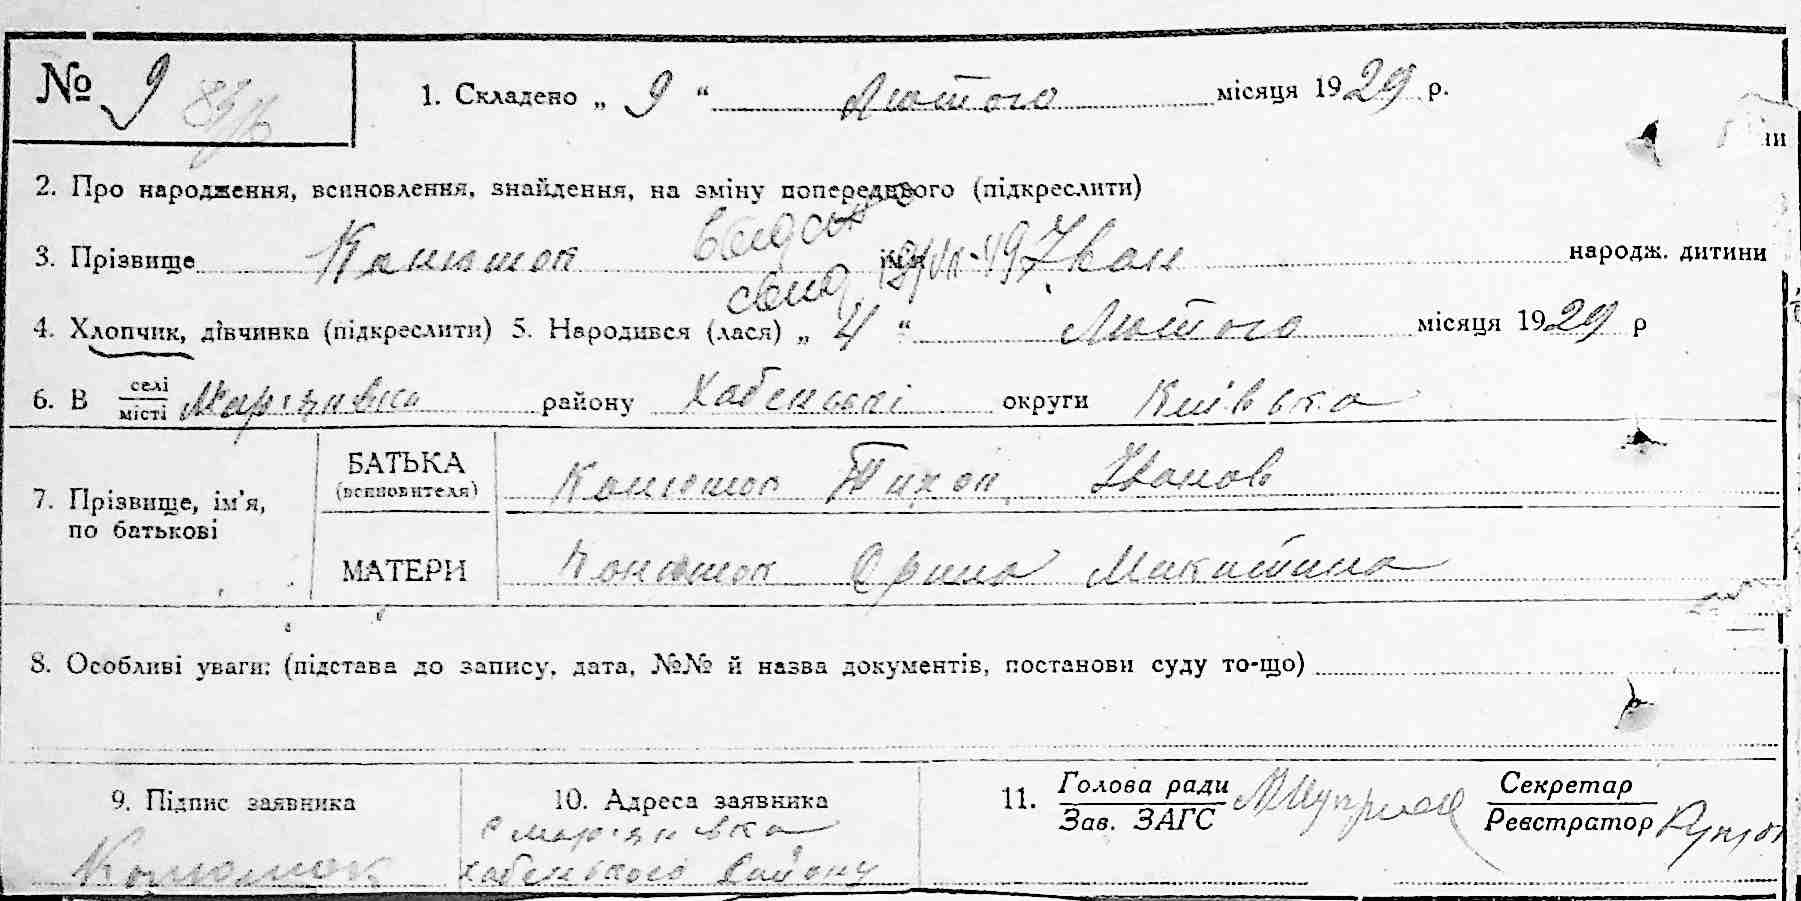 № 9
1. Складено „ 9 “ Лютого місяця 1929 р.
2. Про народження, всиновлення, знайдення, на зміну попереднього (підкреслити)
3. Прізвище Конюшок ім'я Іван народж. дитини
свид.
4. Хлопчик, дівчинка (підкреслити) 5. Народився (лася) „ 4 “ Лютого місяця 1929 р
6. В селі місті Мар'янівка району Хабенські округи Київська
7. Прізвище, ім'я, по батькові
БАТЬКА (всиновителя) Конюшок Тихон Іванов
МАТЕРИ Конюшок Орина Микитина
8. Особливі уваги: (підстава до запису, дата, №№ й назва документів, постанови суду то-що)
9. Підпис заявника
Конюшок
10. Адреса заявника
с Мар'янівка
Хабенського Району
11. Голова ради
Зав. ЗАГС
Секретар
Реєстратор